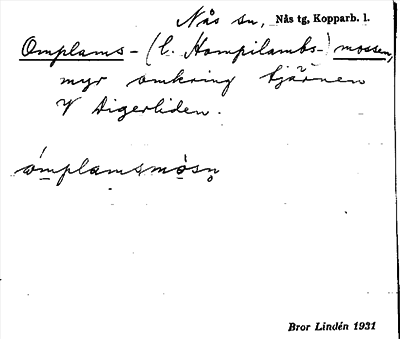 Nås sn, Nås tg, Kopparb. l.
Omplams- (l. Hompilambs-) mossen,
myr omkring tjärnen
V Digerliden.
ómplamsmòsn̥
Bror Lindén 1931